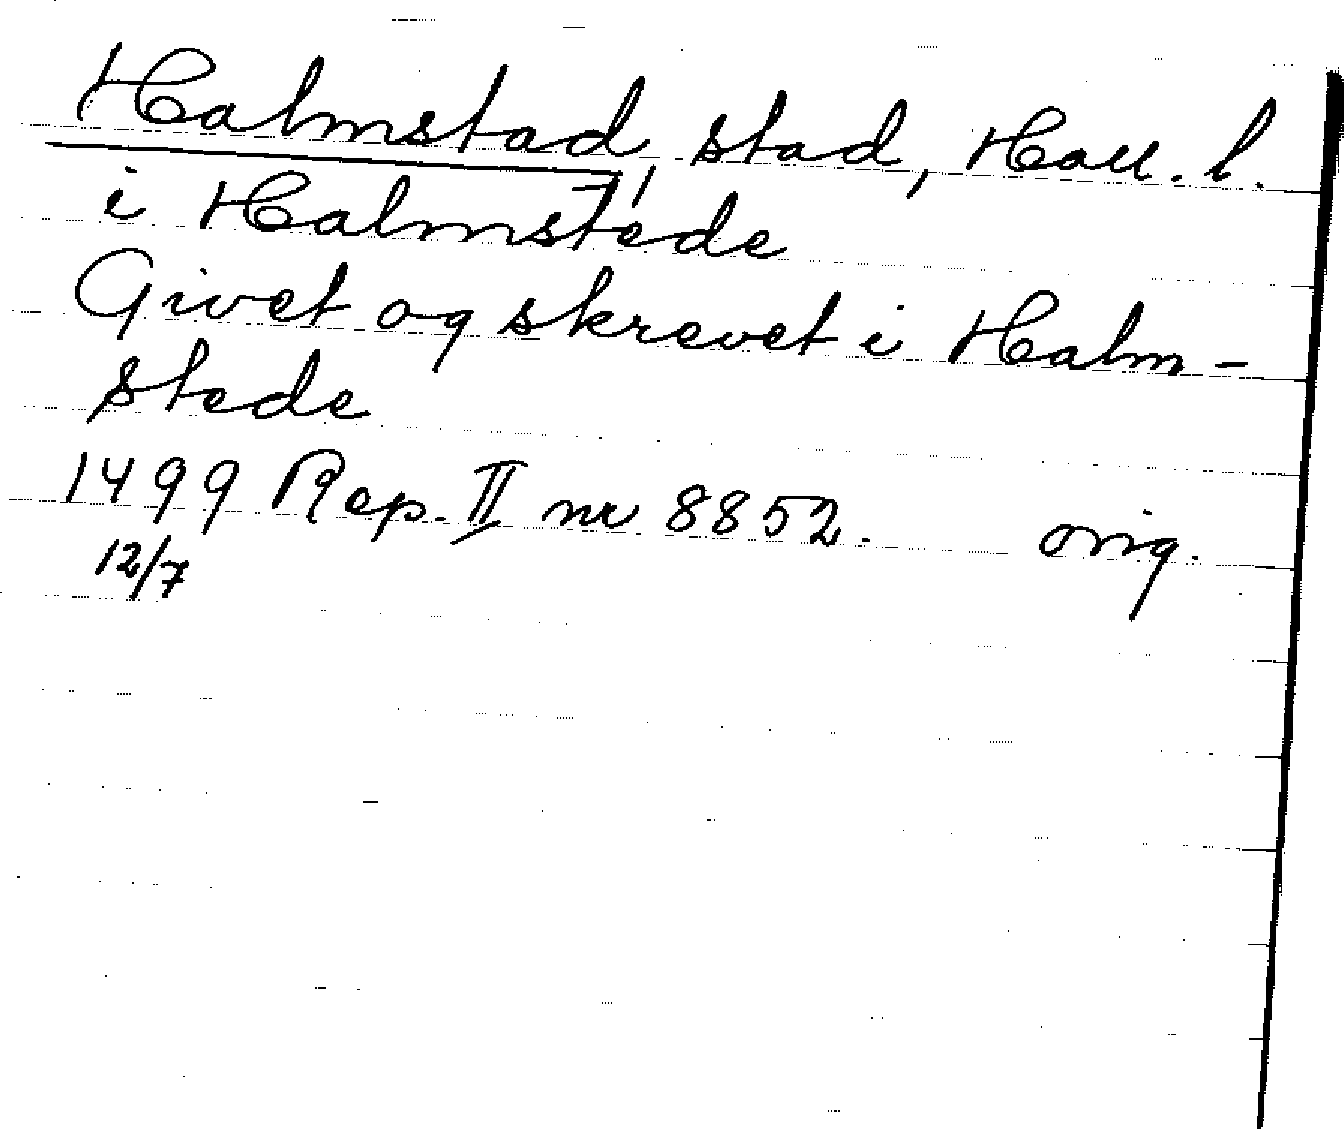 Halmstad, stad, Hall. l.
i Halmstede
Givet og skrevet i Halm-
stede
1499 Rep. II nr 8852. orig.
12/7